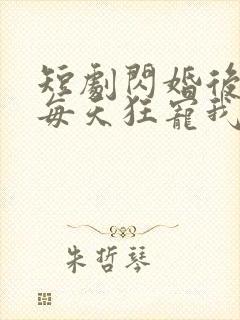 短劇閃婚後
每天狂寵我
朱哲琴